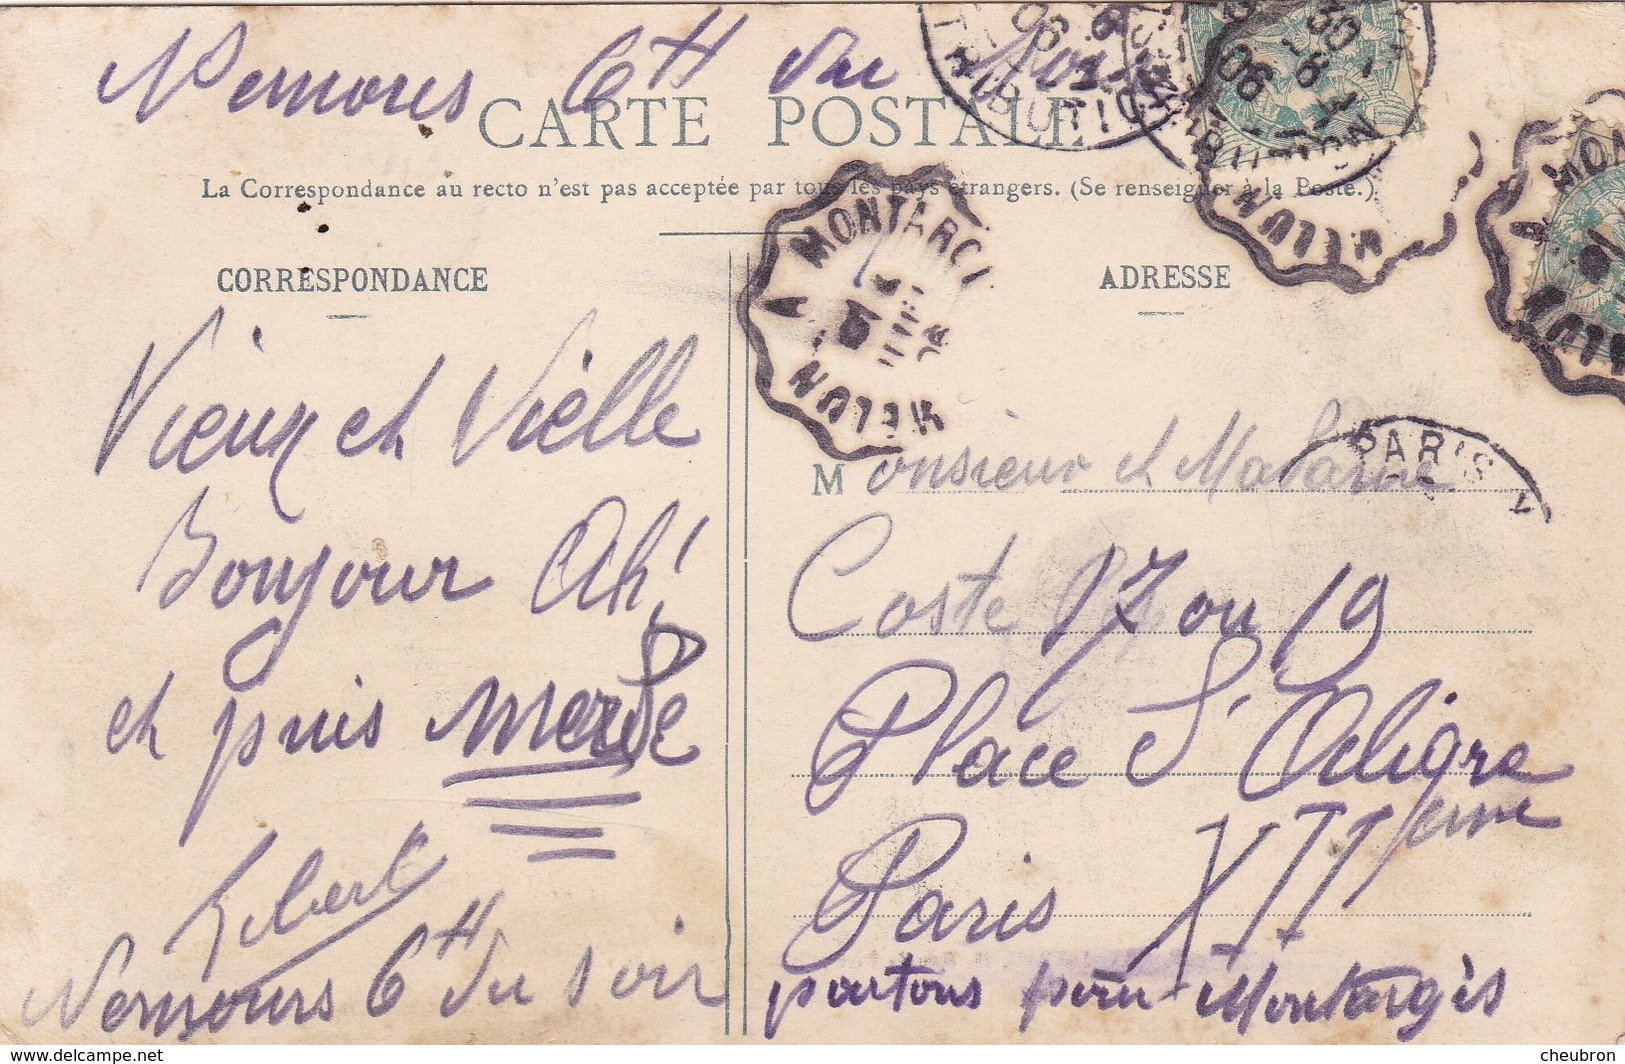 Nemours 6 H du soir
CARTE POSTALE
La Correspondance au recto n'est pas acceptée par tous les pays étrangers. (Se renseigner à la Poste.)
CORRESPONDANCE
ADRESSE
MONTARGI
A
MELUN
MELUN
DISTRIBUTION
06
PARIS
Vieux et Vielle
Bonjour Ah!
et puis merde
Nemours 6 H du soir
Monsieur et Madame
Coste 17 ou 19
Place d'Aligre
Paris XII eme
partons pour Montargis
delcampe.net
cheubron